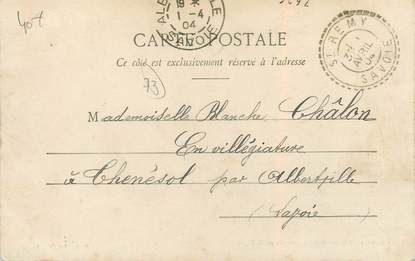 40t
ALBE LLE
1-4
04
SAVOIE
CARTE POSTALE
Ce côté est exclusivement réservé à l'adresse
ST REMY
AVRIL
04
SAVOIE
73
Mademoiselle Blanche Châlon
En villégiature
à Thenésol par Albertville
(Savoie)